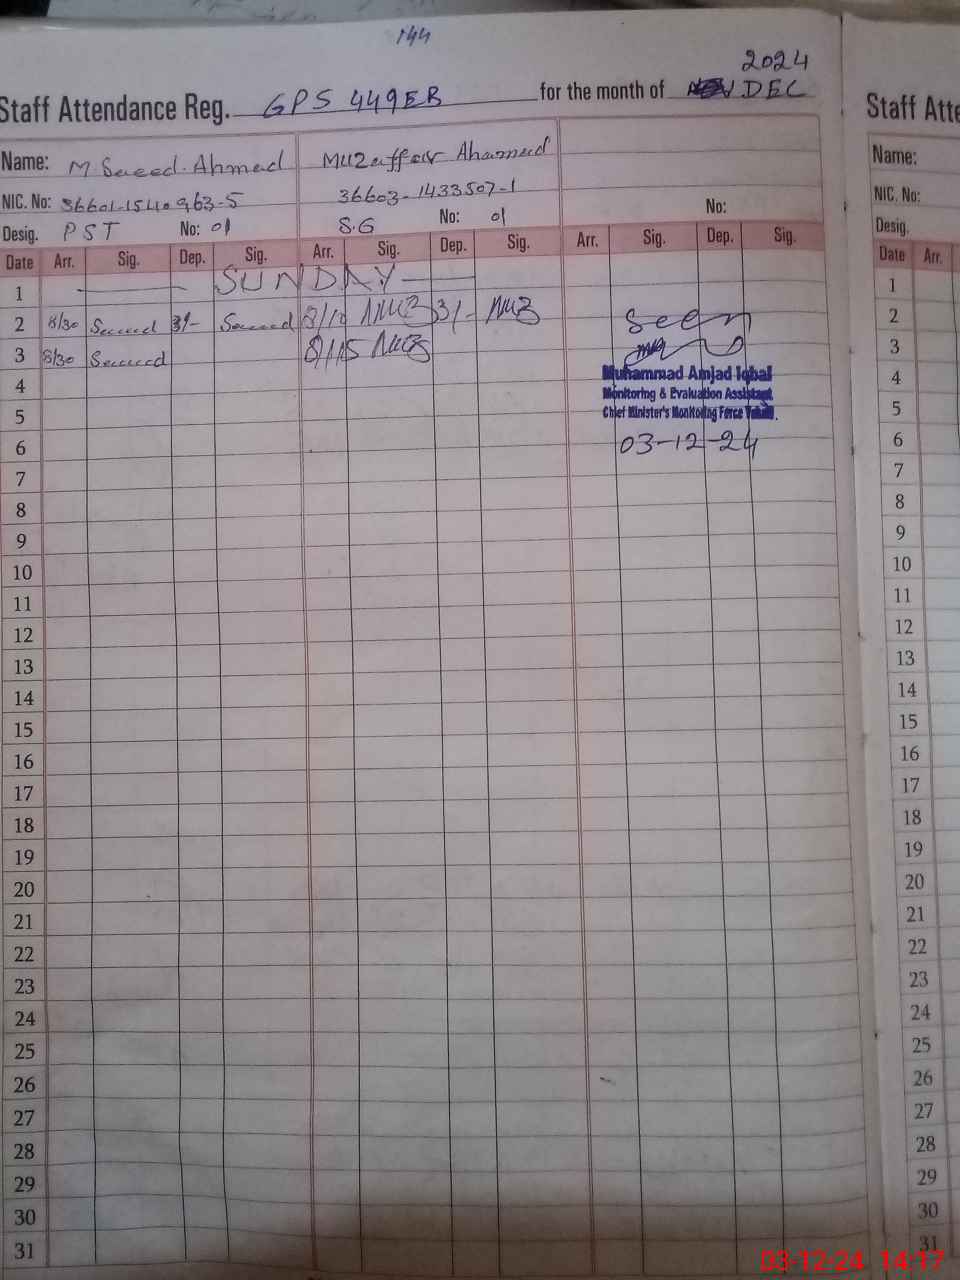 144
2024
Staff Attendance Reg. GPS 449EB for the month of DEC
Name: M Saeed Ahmad Muzaffar Ahamad
NIC. No: 36601-1540963-5 36603-1433507-1
Desig. PST No: 01 S.G No: 01 No:
Date Arr. Sig. Dep. Sig. Arr. Sig. Dep. Sig. Arr. Sig. Dep. Sig.
1 SUNDAY
2 8/30 Saeed 3/- Saeed 8/10 MUZ 3/- MUZ Seen
3 8/30 Saeed 8/15 MUZ
4 Muhammad Amjad Iqbal
Monitoring & Evaluation Assistant
5 Chief Minister's Monitoring Force
6 03-12-24
7
8
9
10
11
12
13
14
15
16
17
18
19
20
21
22
23
24
25
26
27
28
29
30
31
Staff Atte
Name:
NIC. No:
Desig.
Date Arr.
1
2
3
4
5
6
7
8
9
10
11
12
13
14
15
16
17
18
19
20
21
22
23
24
25
26
27
28
29
30
31
03-12-24 14:17